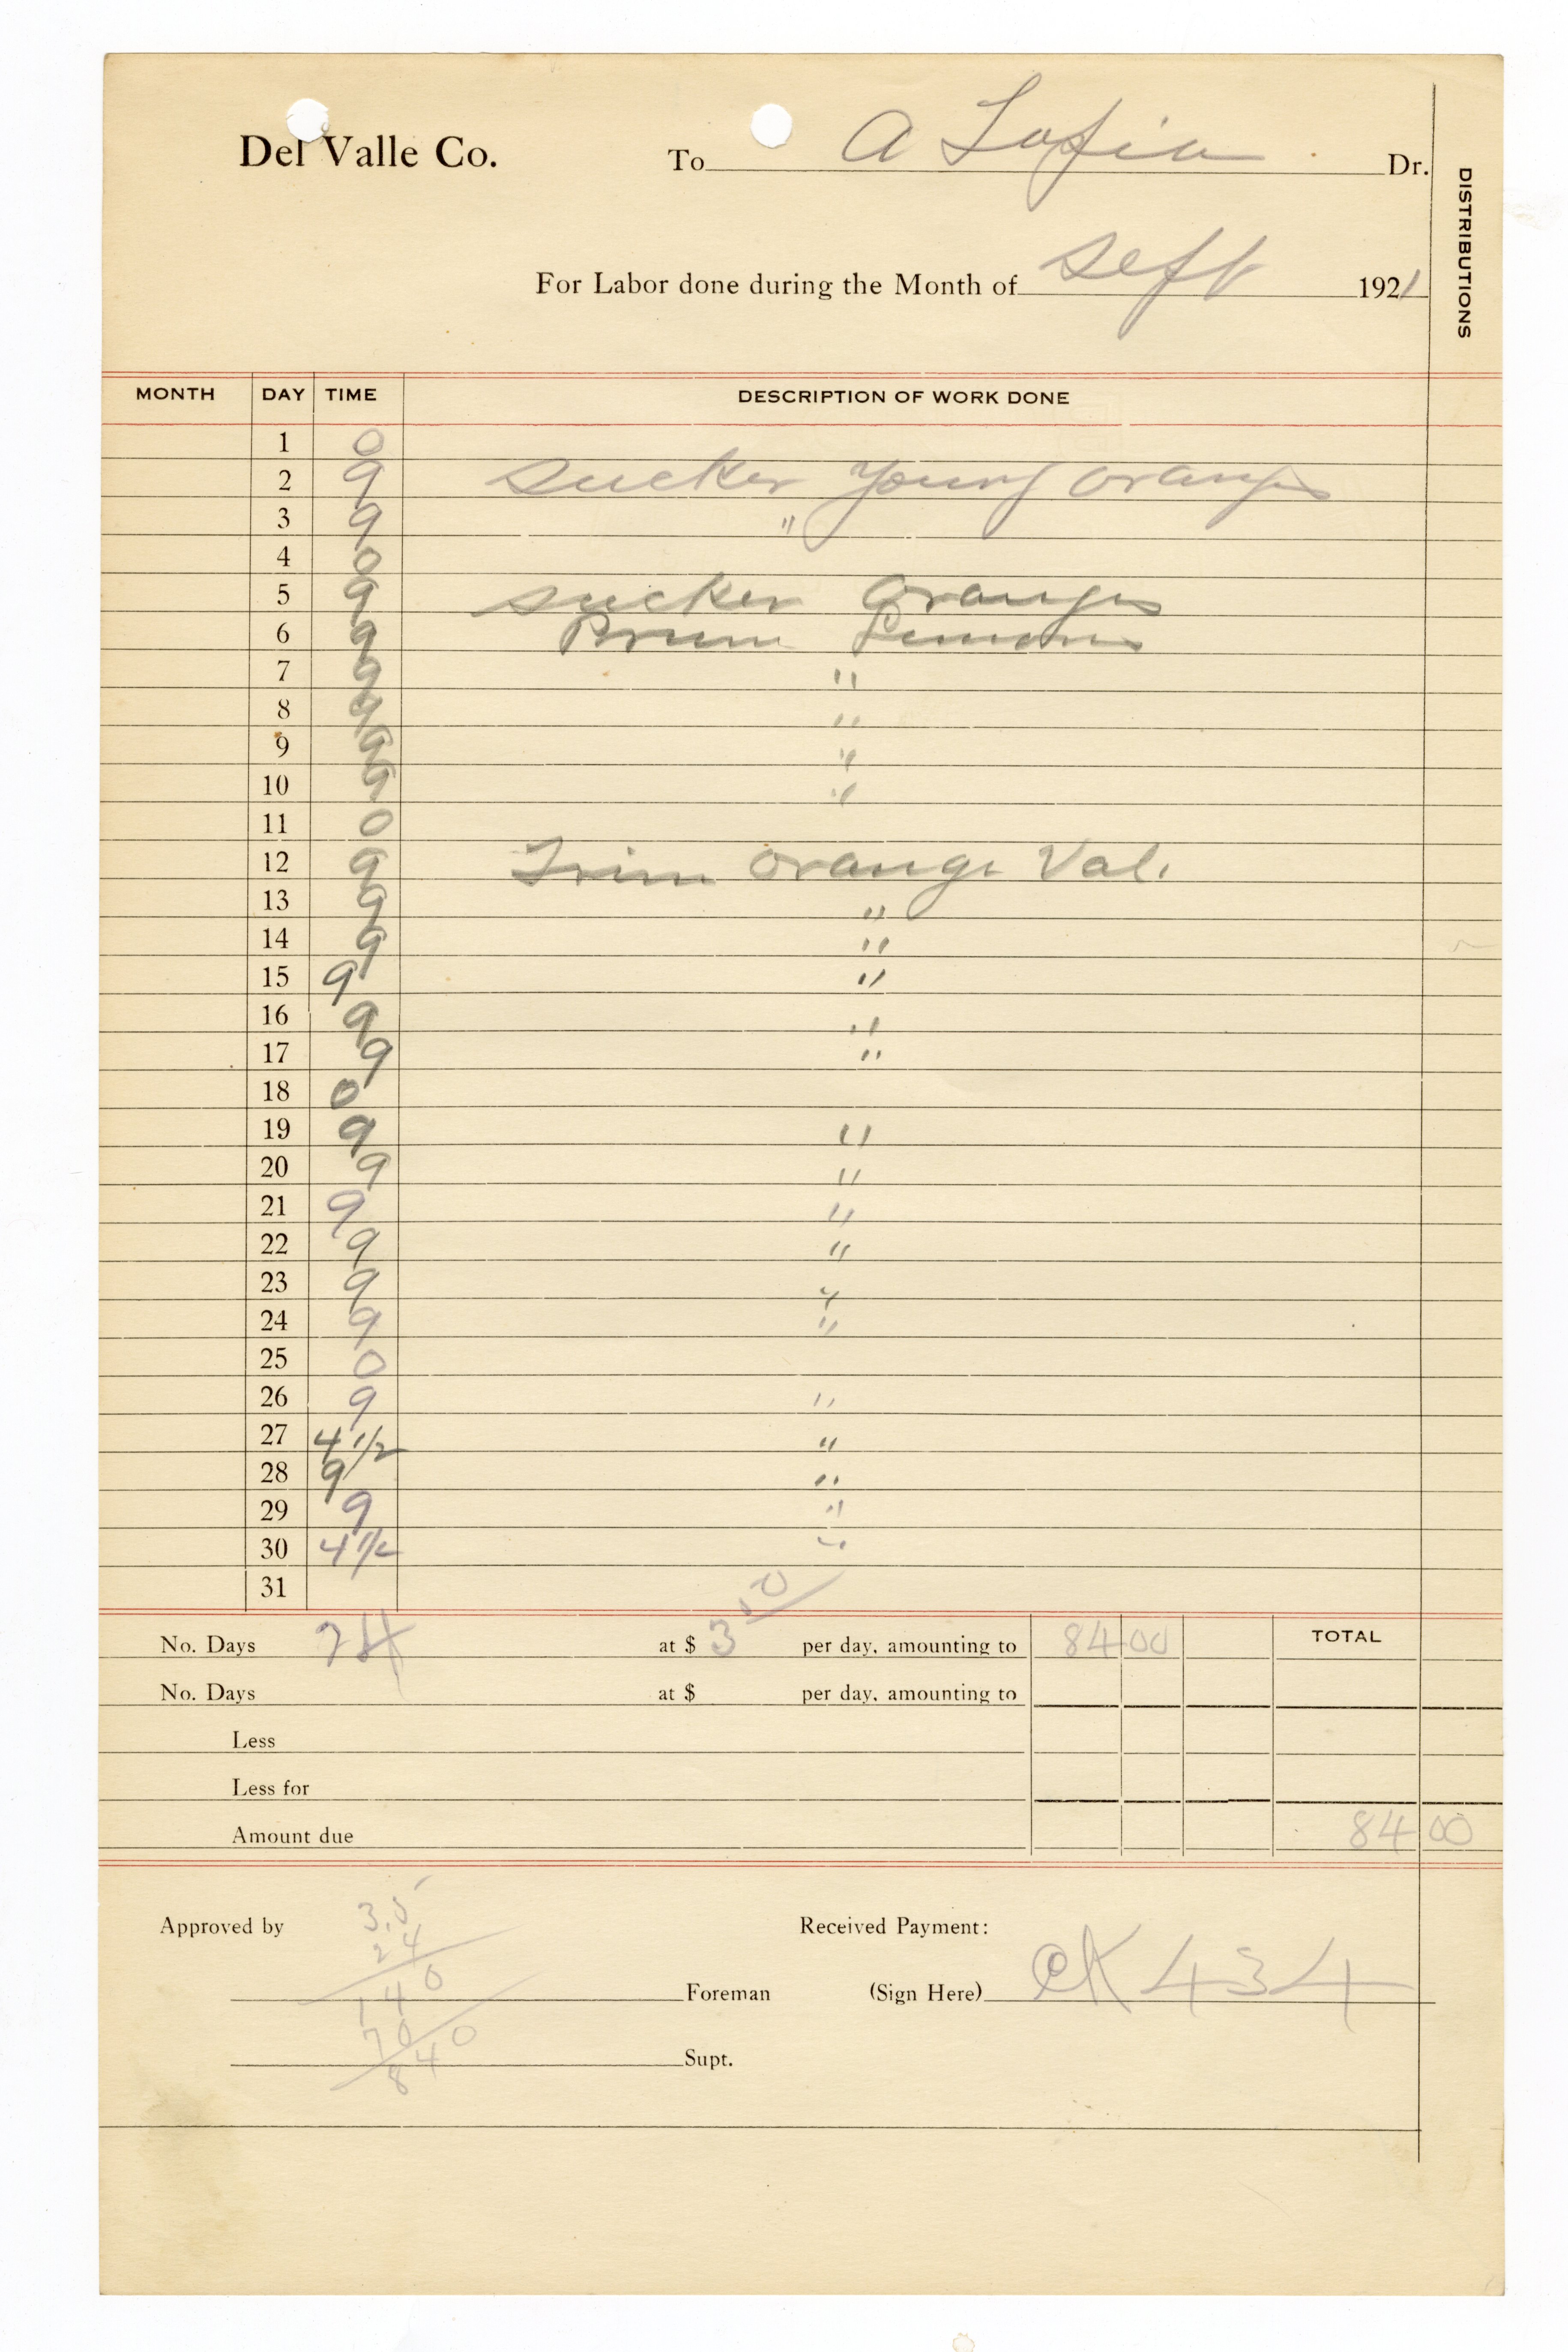 Del Valle Co. To A Dr.
For Labor done during the Month of Sept 1921
DISTRIBUTIONS
MONTH DAY TIME DESCRIPTION OF WORK DONE
1 0
2 9 Sucker Young Oranges
3 9 "
4 0
5 9 Sucker Oranges
6 9 Prune Lemons
7 9 "
8 9 "
9 9 "
10 9 "
11 0
12 9 Trim Orange Val.
13 9 "
14 9 "
15 9 "
16 9 "
17 9 "
18 0
19 9 "
20 9 "
21 9 "
22 9 "
23 9 "
24 9 "
25 0
26 9 "
27 4 1/2 "
28 9 "
29 9 "
30 4 1/2 "
31
No. Days 24 at $ 3.50 per day, amounting to 84 00 TOTAL
No. Days at $ per day, amounting to
Less
Less for
Amount due 84 00
Approved by Received Payment:
3.5
24
140
70
840
Foreman (Sign Here) CK 434
Supt.